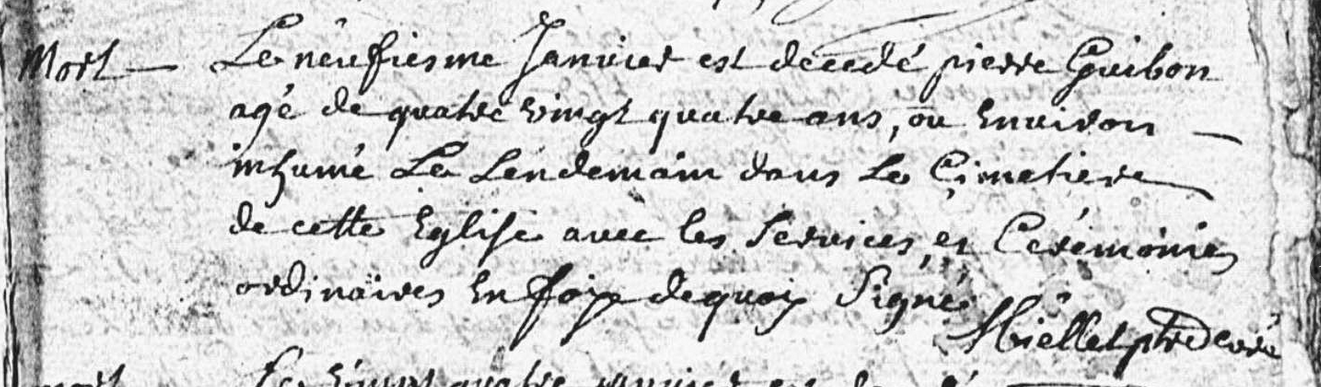 Mort — Le neufiesme Janvier est decedé pierre Guibon
agé de quatre vingt quatre ans, ou Environ —
inhumé Le Lendemain dans Le Cimetiere
de cette Eglise avec les Services, et Cerémonies
ordinaires En foy de quoy Signé
ptre Curé
mort Le vingt quatre janvier est decedé